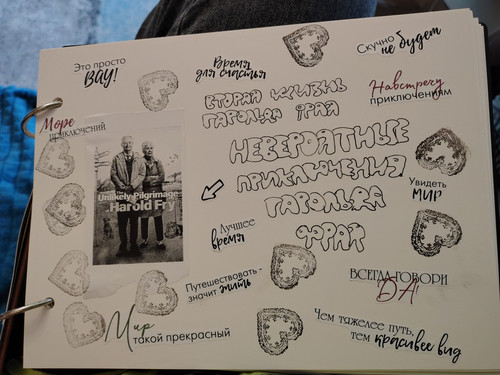 Это просто
ВАУ!
Время
для счастья
Скучно
не будет
ВТОРАЯ ЖИЗНЬ
ГАРОЛЬДА ФРАЯ
Навстречу
приключениям
Море
приключений
НЕВЕРОЯТНЫЕ
ПРИКЛЮЧЕНИЯ
ГАРОЛЬДА
ФРАЙ
The
Unlikely Pilgrimage
of
Harold Fry
Увидеть
МИР
Лучшее
время
Путешествовать -
значит жить
ВСЕГДА ГОВОРИ
ДА!
Мир
такой прекрасный
Чем тяжелее путь,
тем красивее вид